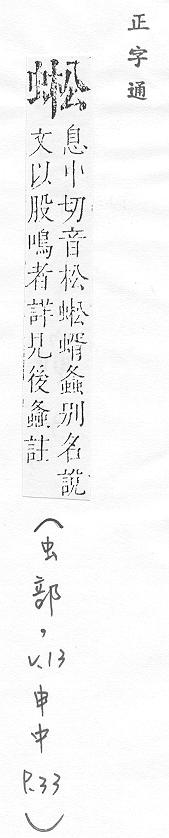 正字通
蜙
息中切音松蜙蝑螽別名說
文以股鳴者詳見後螽註
(虫部,v.13申中p.33)